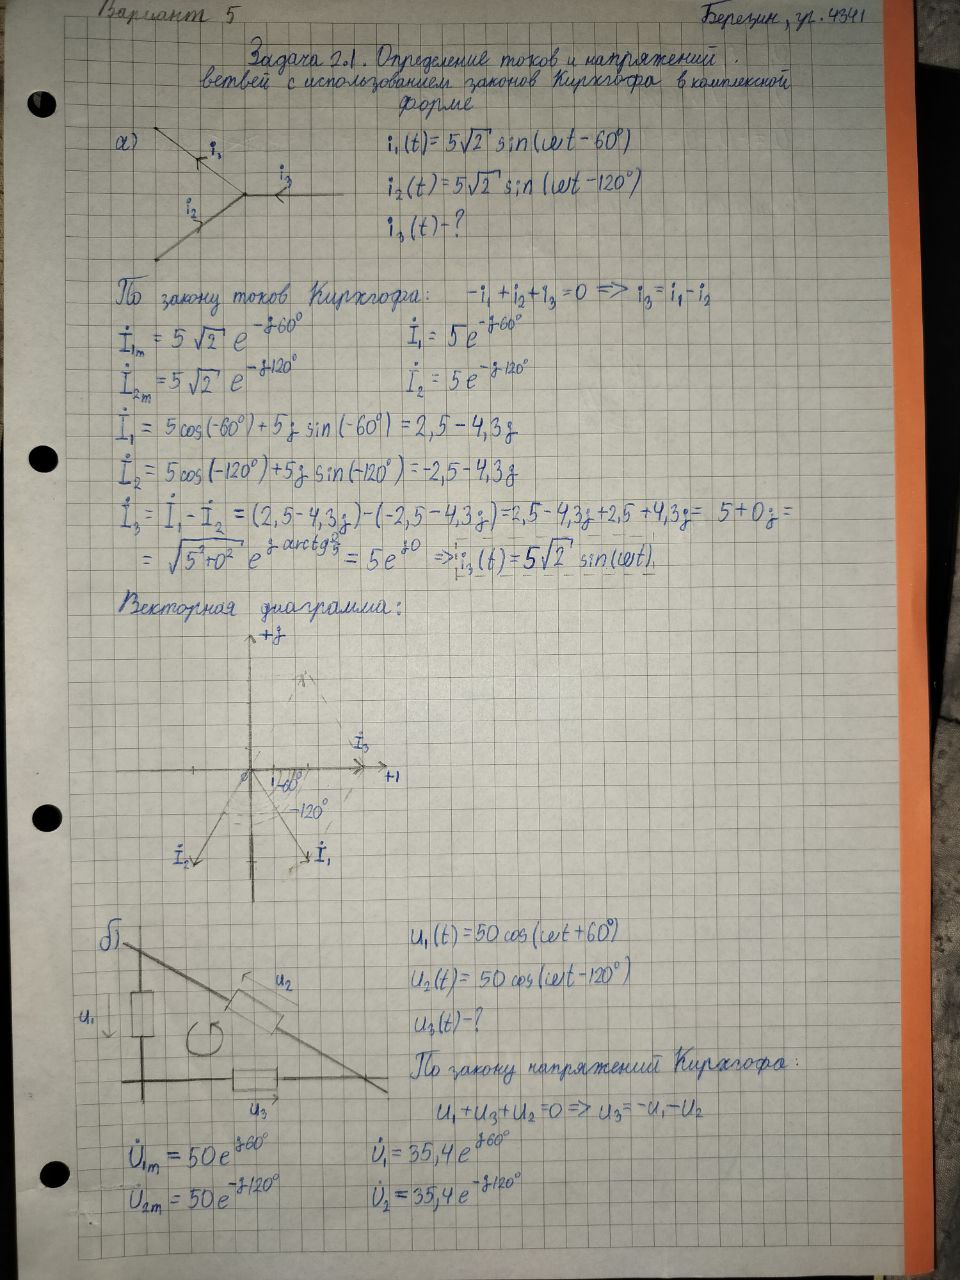 Вариант 5
Березин, гр. 4341
Задача 2.1. Определение токов и напряжений
ветвей с использованием законов Кирхгофа в комплексной
форме
а)
i₁
i₃
i₂
i₁(t) = 5√2 sin(ωt - 60°)
i₂(t) = 5√2 sin(ωt - 120°)
i₃(t) - ?
По закону токов Кирхгофа: -i₁ + i₂ + i₃ = 0 => i₃ = i₁ - i₂
İ₁ₘ = 5√2 e^(-j60°) İ₁ = 5e^(-j60°)
İ₂ₘ = 5√2 e^(-j120°) İ₂ = 5e^(-j120°)
İ₁ = 5cos(-60°) + 5j sin(-60°) = 2,5 - 4,3j
İ₂ = 5cos(-120°) + 5j sin(-120°) = -2,5 - 4,3j
İ₃ = İ₁ - İ₂ = (2,5 - 4,3j) - (-2,5 - 4,3j) = 2,5 - 4,3j + 2,5 + 4,3j = 5 + 0j =
= √(5² + 0²) e^(j arctg 0/5) = 5e^(j0) => i₃(t) = 5√2 sin(ωt)
Векторная диаграмма:
+j
İ₃
+1
-60°
-120°
İ₂
İ₁
б)
u₁
u₂
u₃
u₁(t) = 50 cos(ωt + 60°)
u₂(t) = 50 cos(ωt - 120°)
u₃(t) - ?
По закону напряжений Кирхгофа:
u₁ + u₃ + u₂ = 0 => u₃ = -u₁ - u₂
U̇₁ₘ = 50e^(j60°) U̇₁ = 35,4e^(j60°)
U̇₂ₘ = 50e^(-j120°) U̇₂ = 35,4e^(-j120°)